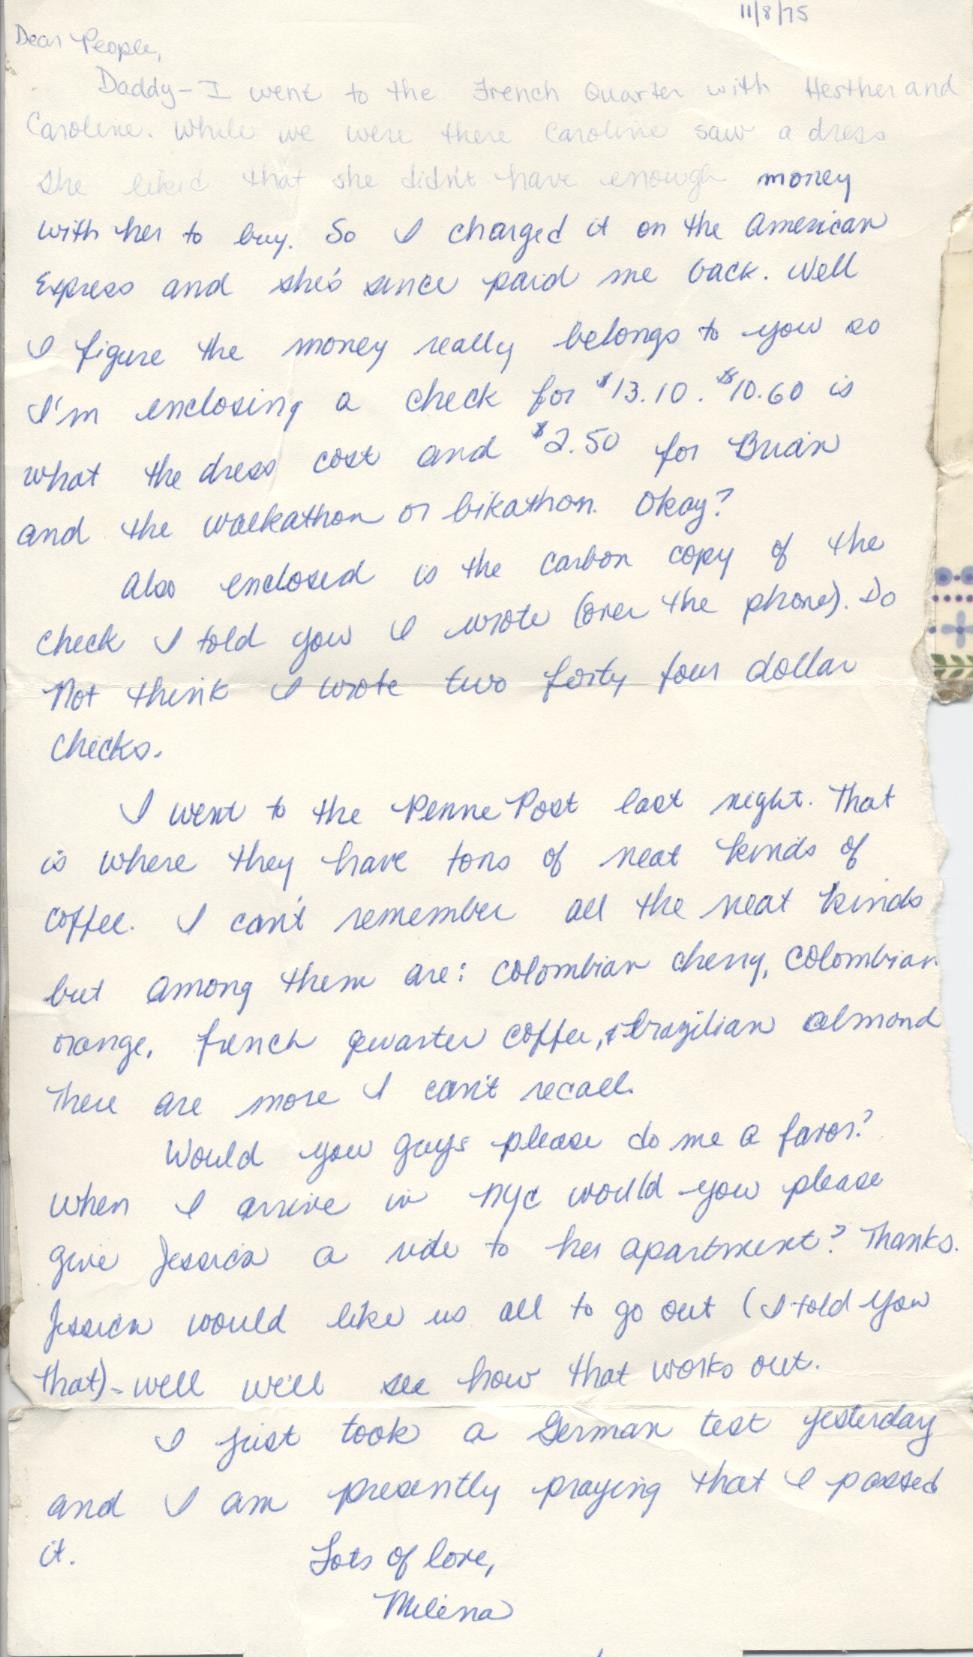 11/8/75
Dear People,
Daddy - I went to the French Quarter with Hesther and
Caroline. While we were there Caroline saw a dress
she liked that she didn't have enough money
with her to buy. So I charged it on the American
Express and she's since paid me back. Well
I figure the money really belongs to you so
I'm enclosing a check for $13.10. $10.60 is
what the dress cost and $2.50 for Brian
and the walkathon or bikathon. Okay?
Also enclosed is the carbon copy of the
check I told you I wrote (over the phone). Do
Not think I wrote two forty four dollar
checks.
I went to the Penne Post last night. That
is where they have tons of neat kinds of
coffee. I can't remember all the neat kinds
but among them are: Colombian cherry, Colombian
orange, french quarter coffee, & brazilian almond
There are more I can't recall.
Would you guys please do me a favor?
When I arrive in NYC would you please
give Jessica a ride to her apartment? Thanks.
Jessica would like us all to go out (I told you
that) - well we'll see how that works out.
I just took a German test yesterday
and I am presently praying that I passed
it.
Lots of love,
Milena